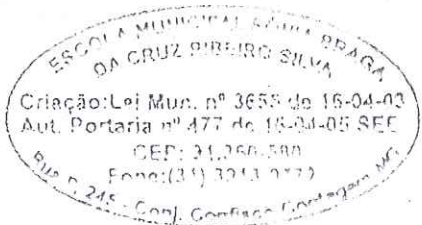 ESCOLA MUNICIPAL BRAGA
DA CRUZ RIBEIRO SILVA
Criação:Lei Mun. nº 3655 de 16-04-03
Aut. Portaria nº 477 de 16-04-05 SEE
CEP:
Fone:(31)
Rua 245 - Conj. Confisco Contagem MG